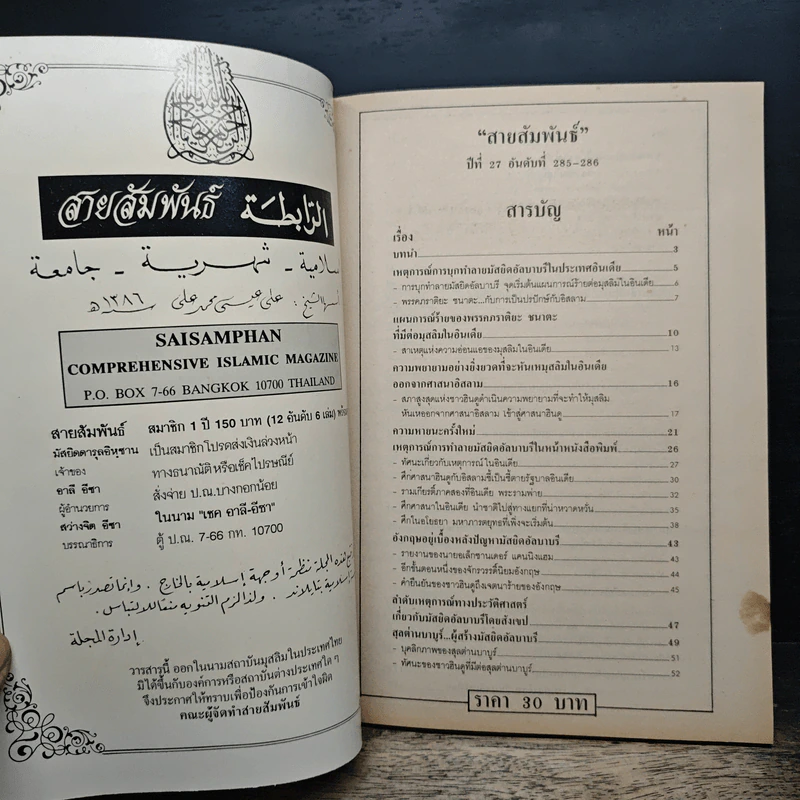 สายสัมพันธ์ الرابطة
سلامية - شهرية - جامعة
على عيسى محمد على ١٣٨٦ھ
SAISAMPHAN
COMPREHENSIVE ISLAMIC MAGAZINE
P.O. BOX 7-66 BANGKOK 10700 THAILAND
สายสัมพันธ์
มัสยิดดารุลอิหฺซาน
เจ้าของ
อาลี อีซา
ผู้อำนวยการ
สว่างจิต อีซา
บรรณาธิการ
สมาชิก 1 ปี 150 บาท (12 อันดับ 6 เล่ม)
เป็นสมาชิกโปรดส่งเงินล่วงหน้า
ทางธนาณัติ หรือเช็คไปรษณีย์
สั่งจ่าย ป.ณ.บางกอกน้อย
ในนาม "เชค อาลี-อีซา"
ตู้ ป.ณ. 7-66 กท. 10700
هذه المجلة نظرة أو جهة إسلامية بالخارج . وإنما تصدر باسم
إسلامية بتايلاند . ولذا لزم التنويه منعا للالتباس .
إدارة المجلة
วารสารนี้ ออกในนามสถาบันมุสลิมในประเทศไทย
มิได้ขึ้นกับองค์การหรือสถาบันต่างประเทศใด ๆ
จึงประกาศให้ทราบเพื่อป้องกันการเข้าใจผิด
คณะผู้จัดทำสายสัมพันธ์
"สายสัมพันธ์"
ปีที่ 27 อันดับที่ 285-286
สารบัญ
เรื่อง หน้า
บทนำ 3
เหตุการณ์การบุกทำลายมัสยิดอัลบาบรีในประเทศอินเดีย 5
- การบุกทำลายมัสยิดอัลบาบรี จุดเริ่มต้นแผนการณ์ร้ายต่อมุสลิมในอินเดีย 6
- พรรคภราติยะ ชนาตะ...กับการเป็นปรปักษ์กับอิสลาม 7
แผนการณ์ร้ายของพรรคภราติยะ ชนาตะ
ที่มีต่อมุสลิมในอินเดีย 10
- สาเหตุแห่งความอ่อนแอของมุสลิมในอินเดีย 13
ความพยายามอย่างยิ่งยวดที่จะหันเหมุสลิมในอินเดีย
ออกจากศาสนาอิสลาม 16
- สภาสูงสุดแห่งชาวฮินดูดำเนินความพยายามที่จะทำให้มุสลิม
หันเหออกจากศาสนาอิสลาม เข้าสู่ศาสนาฮินดู 17
ความหายนะครั้งใหม่ 21
เหตุการณ์การทำลายมัสยิดอัลบาบรีในหน้าหนังสือพิมพ์ 26
- ทัศนะเกี่ยวกับเหตุการณ์ในอินเดีย 27
- ศึกศาสนาฮินดูกับอิสลามชี้เป็นชี้ตายรัฐบาลอินเดีย 30
- รามเกียรติ์ภาคสองที่อินเดีย พระรามพ่าย 32
- ศึกศาสนาในอินเดีย นำชาติไปสู่ทางแยกที่น่าหวาดหวั่น 35
- ศึกในอโยธยา มหาภารตยุทธที่เพิ่งจะเริ่มต้น 38
อังกฤษอยู่เบื้องหลังปัญหามัสยิดอัลบาบรี 43
- รายงานของนายอเล็กซานเดอร์ แคนนิงแฮม 43
- อีกขั้นตอนหนึ่งของจักรวรรดิ์นิยมอังกฤษ 44
- คำยืนยันของชาวฮินดูถึงเจตนาร้ายของอังกฤษ 45
ลำดับเหตุการณ์ทางประวัติศาสตร์
เกี่ยวกับมัสยิดอัลบาบรีโดยสังเขป 47
สุลต่านบาบูร์...ผู้สร้างมัสยิดอัลบาบรี 49
- บุคลิกภาพของสุลต่านบาบูร์ 51
- ทัศนะของชาวฮินดูที่มีต่อสุลต่านบาบูร์ 52
ราคา 30 บาท